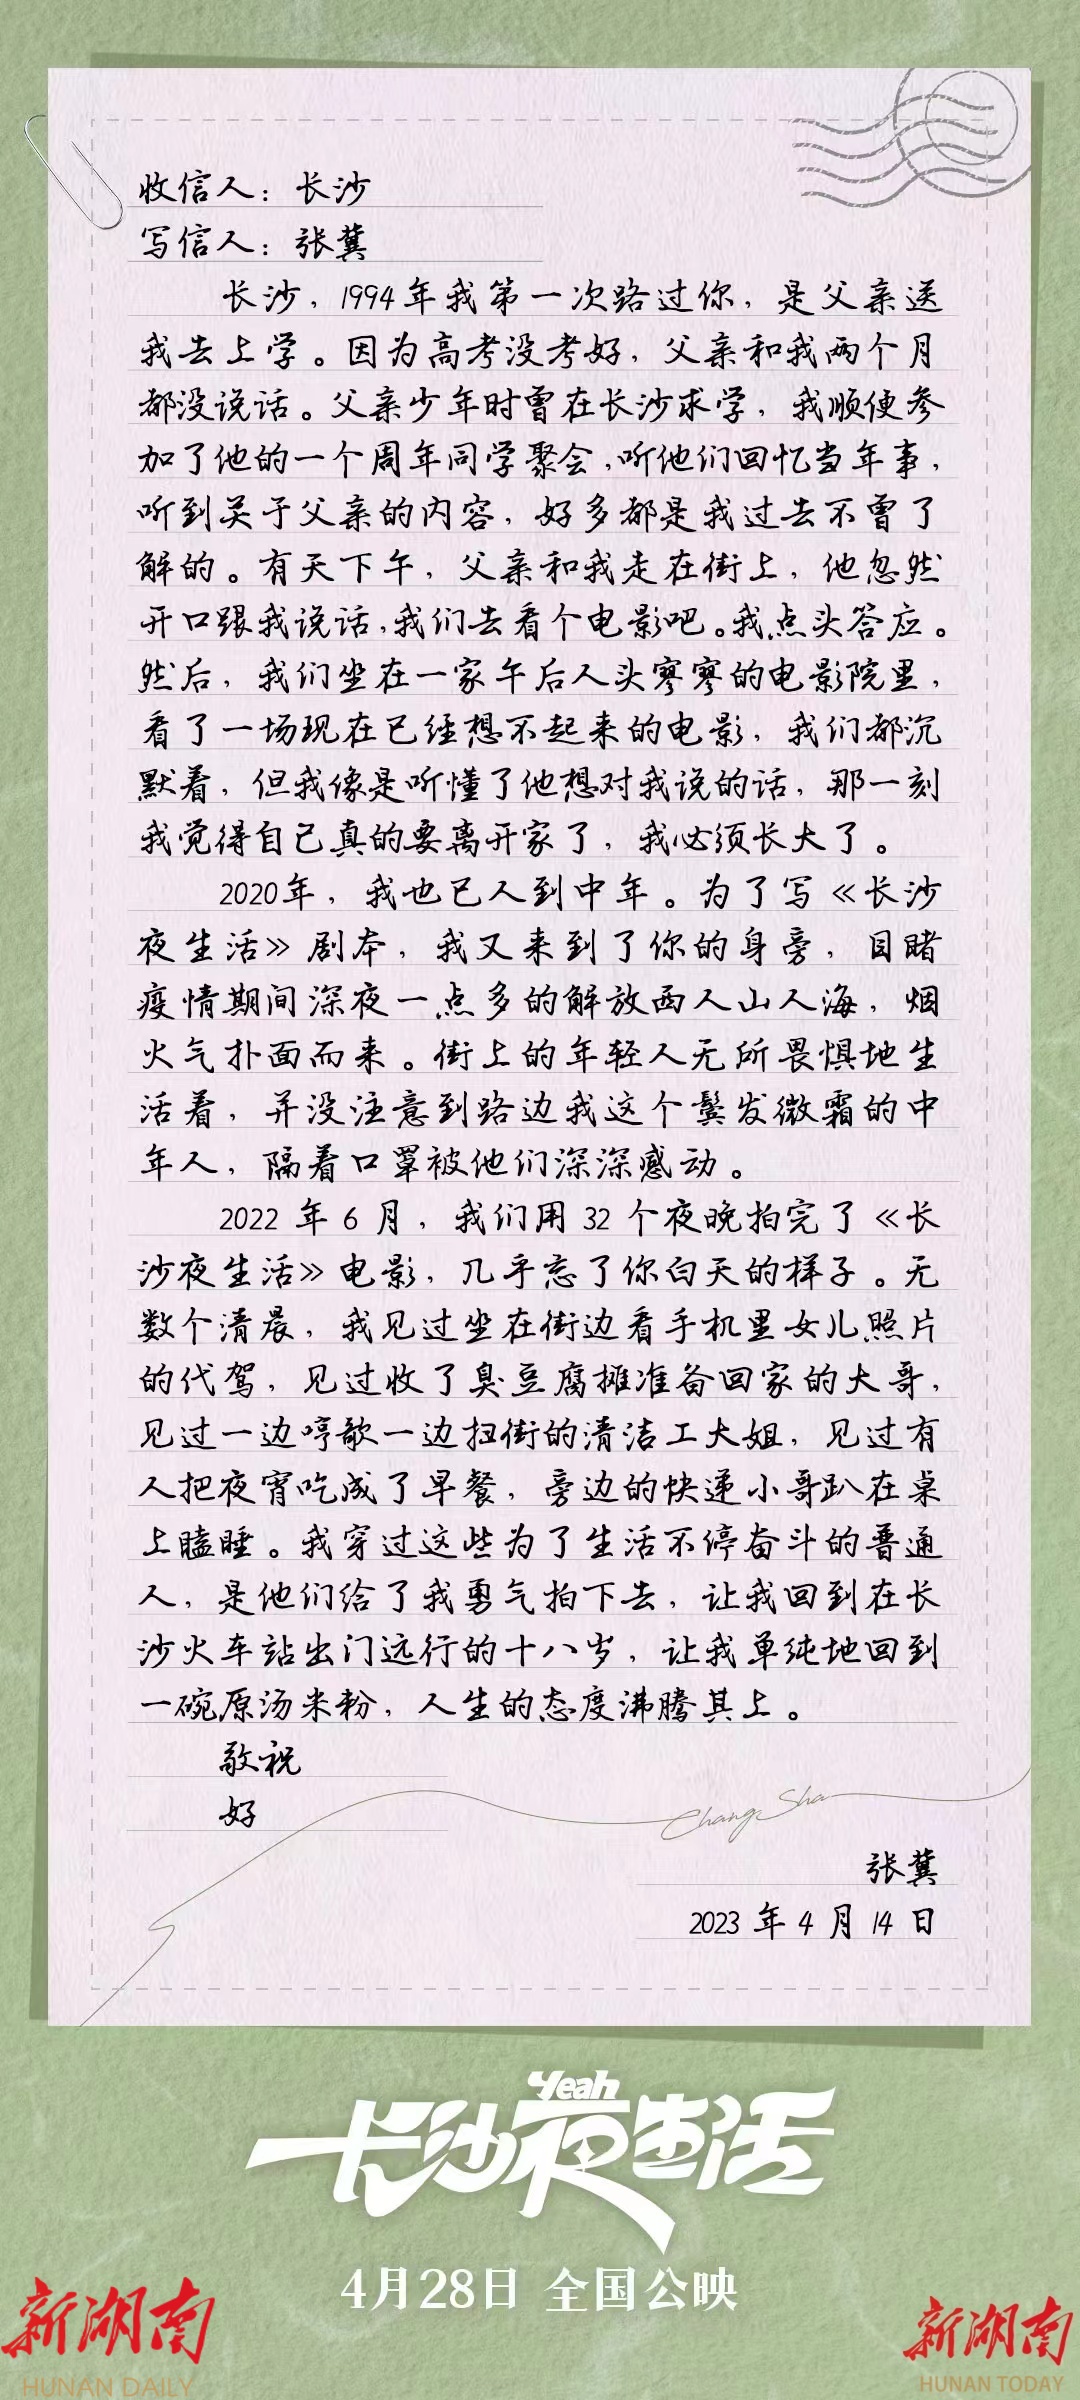 收信人：长沙
写信人：张冀
长沙，1994年我第一次路过你，是父亲送
我去上学。因为高考没考好，父亲和我两个月
都没说话。父亲少年时曾在长沙求学，我顺便参
加了他的一个周年同学聚会，听他们回忆当年事，
听到关于父亲的内容，好多都是我过去不曾了
解的。有天下午，父亲和我走在街上，他忽然
开口跟我说话，我们去看个电影吧。我点头答应。
然后，我们坐在一家午后人头寥寥的电影院里，
看了一场现在已经想不起来的电影，我们都沉
默着，但我像是听懂了他想对我说的话，那一刻
我觉得自己真的要离开家了，我必须长大了。
2020年，我也已人到中年。为了写《长沙
夜生活》剧本，我又来到了你的身旁，目睹
疫情期间深夜一点多的解放西人山人海，烟
火气扑面而来。街上的年轻人无所畏惧地生
活着，并没注意到路边我这个鬓发微霜的中
年人，隔着口罩被他们深深感动。
2022 年 6 月，我们用 32 个夜晚拍完了《长
沙夜生活》电影，几乎忘了你白天的样子。无
数个清晨，我见过坐在街边看手机里女儿照片
的代驾，见过收了臭豆腐摊准备回家的大哥，
见过一边哼歌一边扫街的清洁工大姐，见过有
人把夜宵吃成了早餐，旁边的快递小哥趴在桌
上瞌睡。我穿过这些为了生活不停奋斗的普通
人，是他们给了我勇气拍下去，让我回到在长
沙火车站出门远行的十八岁，让我单纯地回到
一碗原汤米粉，人生的态度沸腾其上。
敬祝
好
Chang Sha
张冀
2023 年 4 月 14 日
Yeah
长沙夜生活
4月28日 全国公映
新湖南
HUNAN DAILY
新湖南
HUNAN TODAY